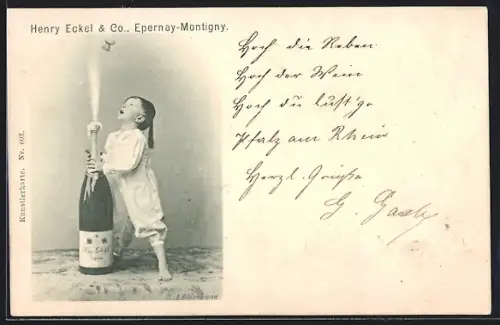 Henry Eckel & Co., Epernay-Montigny.
Hoch die Reben
Hoch der Wein
Hoch die lust'ge
Pfalz am Rhein
Herzl. Grüße
G.
Künstlerkarte. Nr. 607.